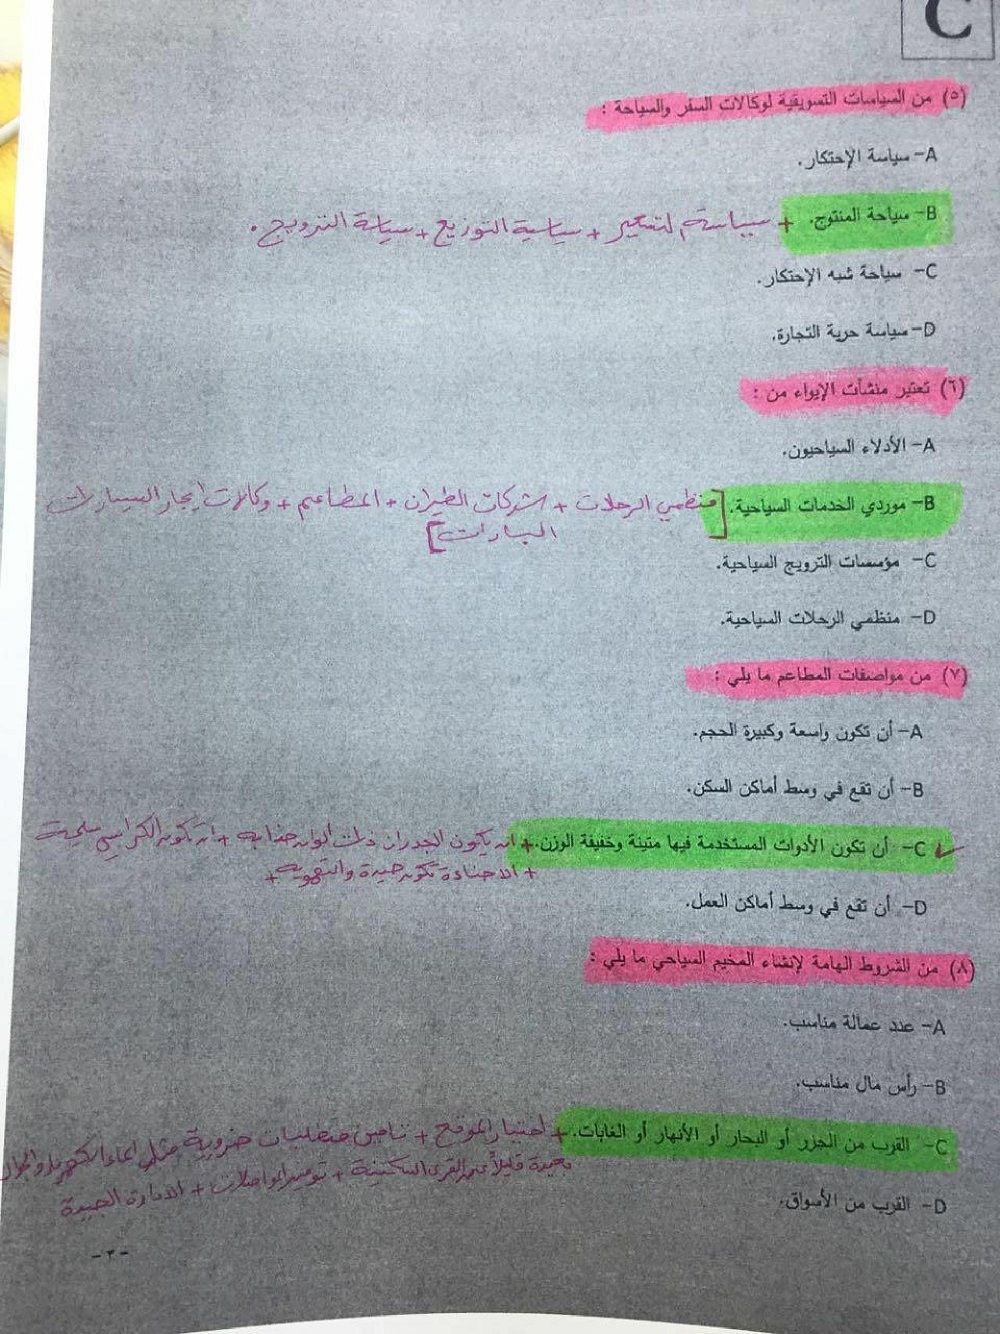 C
(٥) من السياسات التسويقية لوكالات السفر والسياحة :
A- سياسة الإحتكار.
B- سياحة المنتوج. + سياسة لتسعير + سياسية التوزيع + سياسة الترويج.
C- سياحة شبه الإحتكار.
D- سياسة حرية التجارة.
(٦) تعتبر منشآت الإيواء من :
A- الأدلاء السياحيون.
B- موردي الخدمات السياحية. [منظمي الرحلات + شركات الطيران + المطاعم + وكالات إيجار السيارات
السيارات]
C- مؤسسات الترويج السياحية.
D- منظمي الرحلات السياحية.
(٧) من مواصفات المطاعم ما يلي :
A- أن تكون واسعة وكبيرة الحجم.
B- أن تقع في وسط أماكن السكن.
C- أن تكون الأدوات المستخدمة فيها متينة وخفيفة الوزن. + ان يكون الجدران ذات الوان جذابه + ان تكون الكراسي
+ الاضاءة تكون جيدة والتهوية +
D- أن تقع في وسط أماكن العمل.
(٨) من الشروط الهامة لإنشاء المخيم السياحي ما يلي :
A- عدد عمالة مناسب.
B- رأس مال مناسب.
C- القرب من الجزر أو البحار أو الأنهار أو الغابات. + اختيار الموقع + تامين متطلبات ضرورية مثل الماء الكهرباء
بعيدة قليلاً عن القرى السكنية + توفير المواصلات + الادارة الجيدة
D- القرب من الأسواق.
- ٣ -